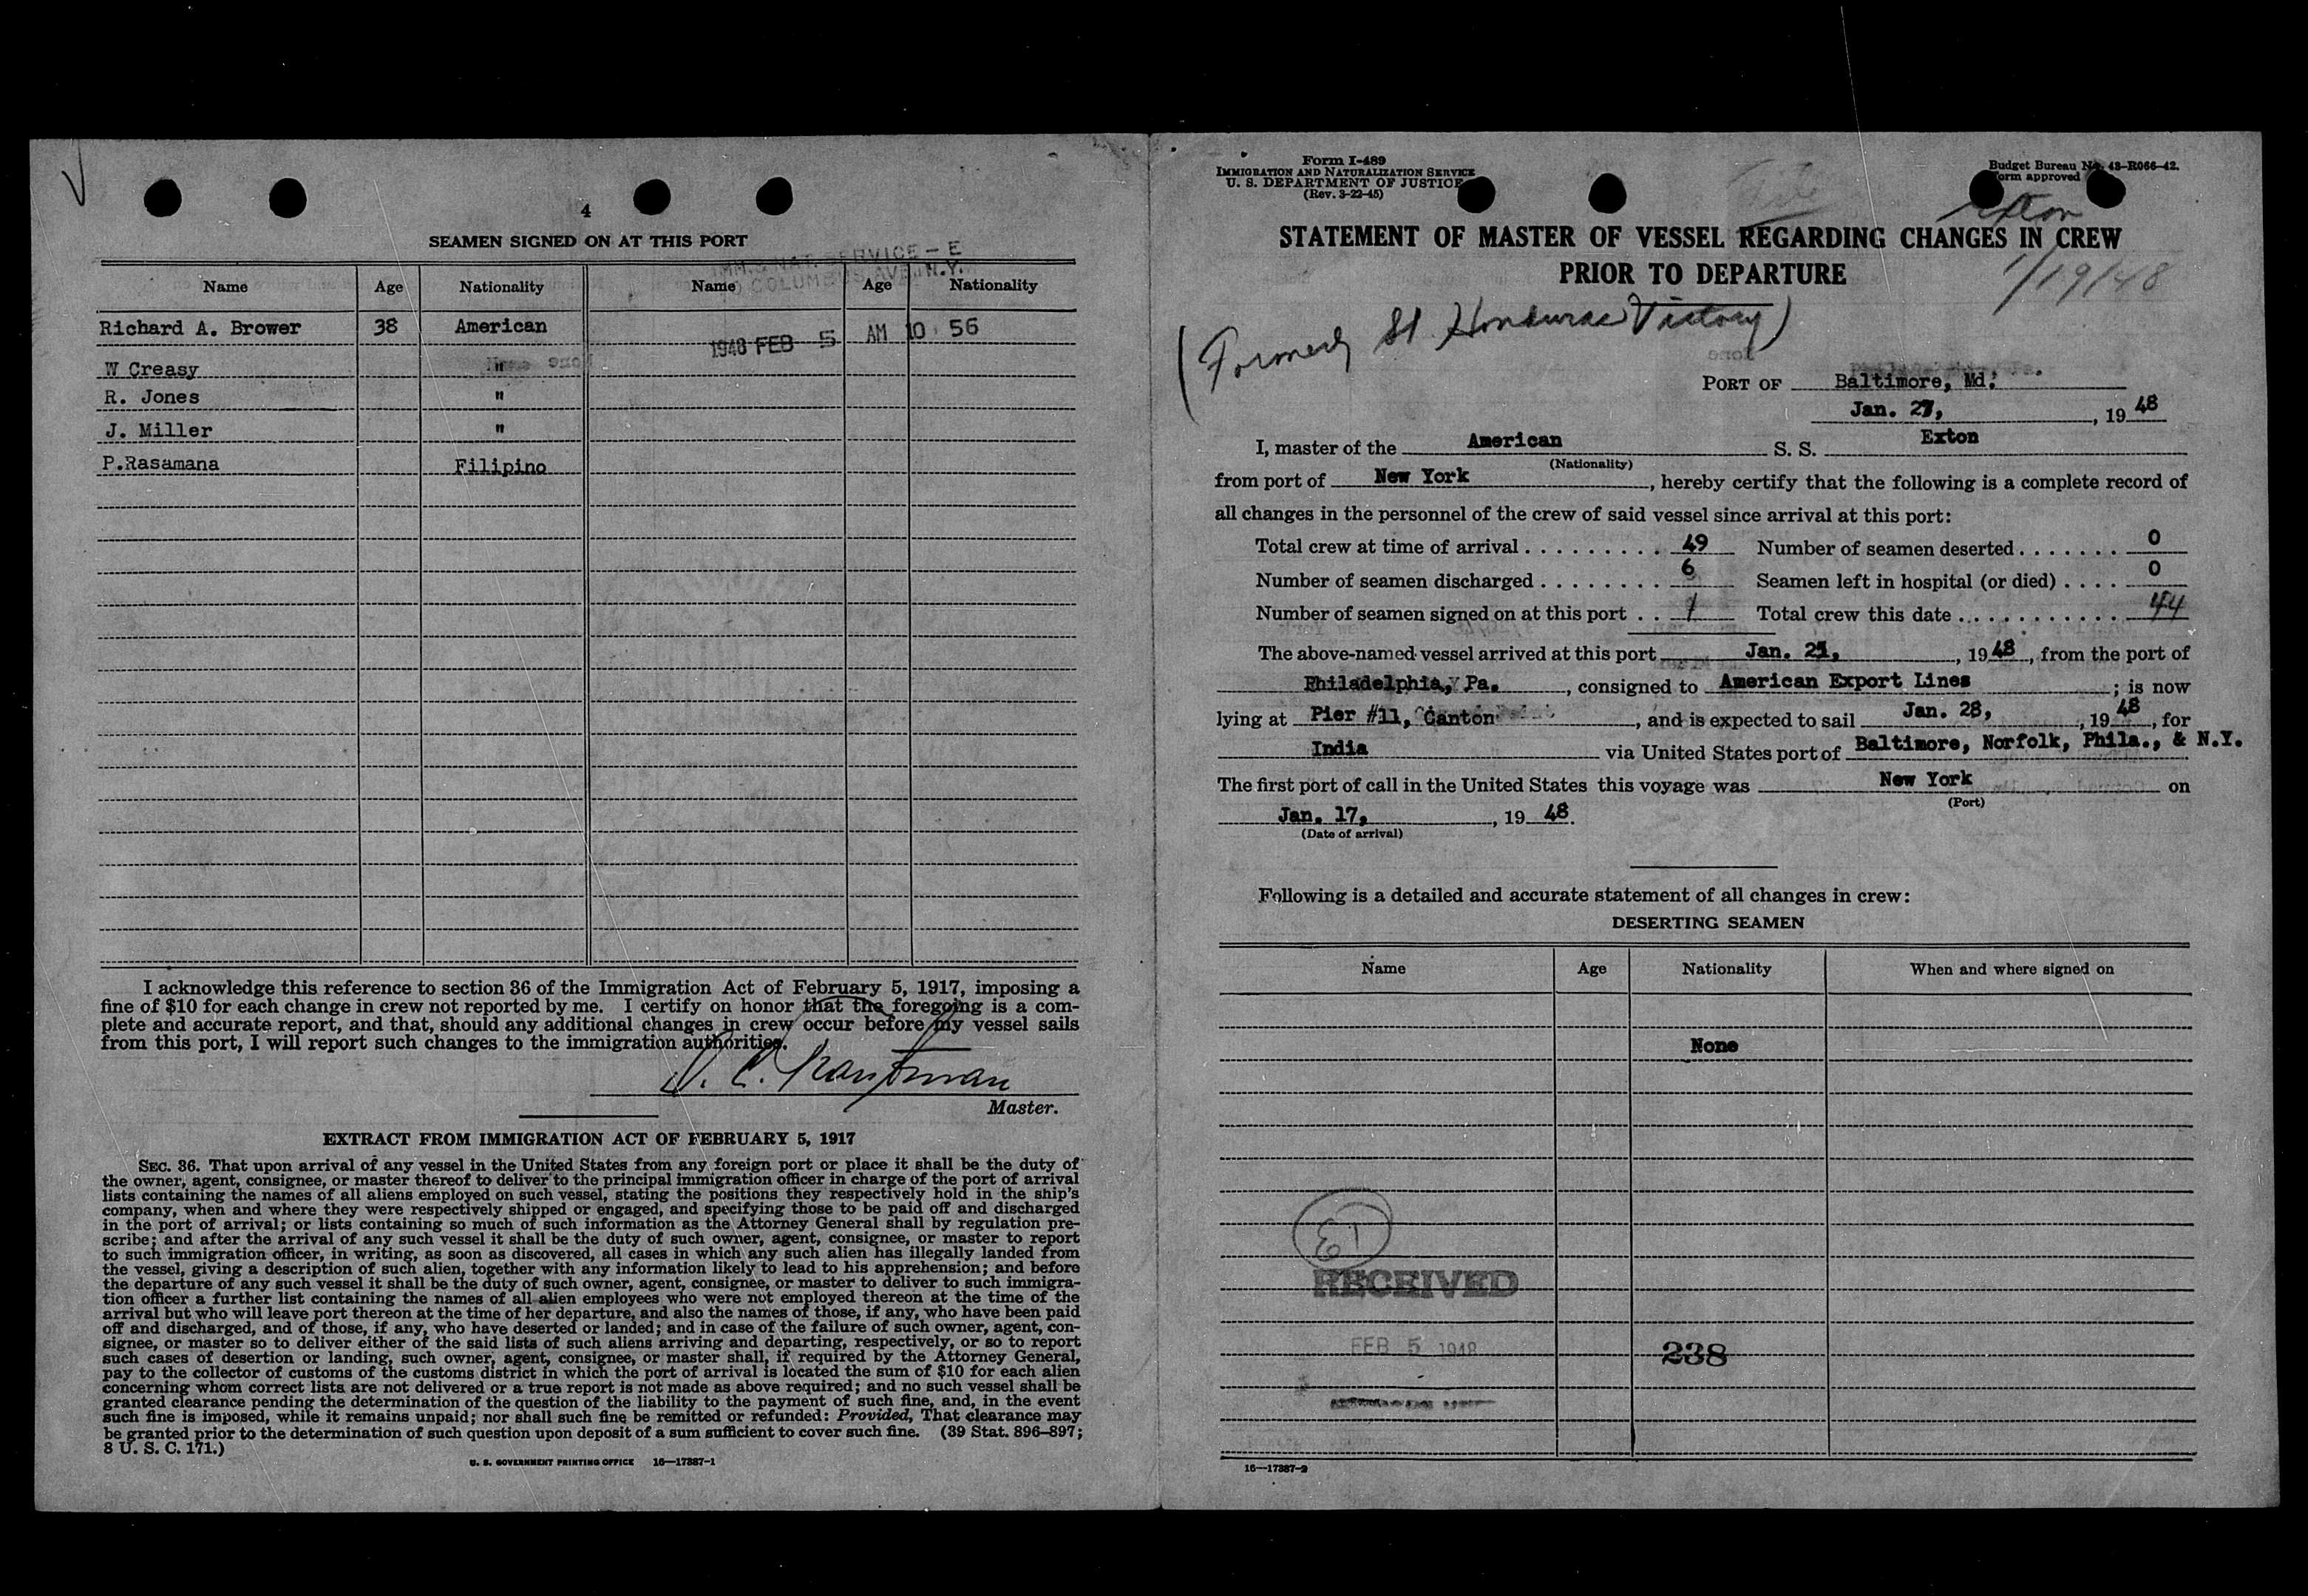 4
SEAMEN SIGNED ON AT THIS PORT
IMM. & NAT. SERVICE - E
COLUMBUS AVE. N.Y.
Name Age Nationality Name Age Nationality
Richard A. Brower 38 American
1948 FEB 5 AM 10 56
W Creasy "
R. Jones "
J. Miller "
P.Rasamana Filipino
I acknowledge this reference to section 36 of the Immigration Act of February 5, 1917, imposing a
fine of $10 for each change in crew not reported by me. I certify on honor that the foregoing is a com-
plete and accurate report, and that, should any additional changes in crew occur before my vessel sails
from this port, I will report such changes to the immigration authorities.
Master.
EXTRACT FROM IMMIGRATION ACT OF FEBRUARY 5, 1917
SEC. 36. That upon arrival of any vessel in the United States from any foreign port or place it shall be the duty of
the owner, agent, consignee, or master thereof to deliver to the principal immigration officer in charge of the port of arrival
lists containing the names of all aliens employed on such vessel, stating the positions they respectively hold in the ship's
company, when and where they were respectively shipped or engaged, and specifying those to be paid off and discharged
in the port of arrival; or lists containing so much of such information as the Attorney General shall by regulation pre-
scribe; and after the arrival of any such vessel it shall be the duty of such owner, agent, consignee, or master to report
to such immigration officer, in writing, as soon as discovered, all cases in which any such alien has illegally landed from
the vessel, giving a description of such alien, together with any information likely to lead to his apprehension; and before
the departure of any such vessel it shall be the duty of such owner, agent, consignee, or master to deliver to such immigra-
tion officer a further list containing the names of all alien employees who were not employed thereon at the time of the
arrival but who will leave port thereon at the time of her departure, and also the names of those, if any, who have been paid
off and discharged, and of those, if any, who have deserted or landed; and in case of the failure of such owner, agent, con-
signee, or master so to deliver either of the said lists of such aliens arriving and departing, respectively, or so to report
such cases of desertion or landing, such owner, agent, consignee, or master shall, if required by the Attorney General,
pay to the collector of customs of the customs district in which the port of arrival is located the sum of $10 for each alien
concerning whom correct lists are not delivered or a true report is not made as above required; and no such vessel shall be
granted clearance pending the determination of the question of the liability to the payment of such fine, and, in the event
such fine is imposed, while it remains unpaid; nor shall such fine be remitted or refunded: Provided, That clearance may
be granted prior to the determination of such question upon deposit of a sum sufficient to cover such fine. (39 Stat. 896-897;
8 U. S. C. 171.)
U. S. GOVERNMENT PRINTING OFFICE 16—17387-1
Form I-489
IMMIGRATION AND NATURALIZATION SERVICE
U. S. DEPARTMENT OF JUSTICE
(Rev. 3-22-45)
Budget Bureau No. 43-R066-42.
Form approved
Exton
STATEMENT OF MASTER OF VESSEL REGARDING CHANGES IN CREW
PRIOR TO DEPARTURE
1/19/48
(Formerly St Honduras Victory)
PORT OF Baltimore, Md.
Jan. 27, , 19 48
I, master of the American S. S. Exton
(Nationality)
from port of New York , hereby certify that the following is a complete record of
all changes in the personnel of the crew of said vessel since arrival at this port:
Total crew at time of arrival . . . . . . . . . . 49 Number of seamen deserted . . . . . . . 0
Number of seamen discharged . . . . . . . . 6 Seamen left in hospital (or died) . . . . 0
Number of seamen signed on at this port . . 1 Total crew this date . . . . . . . . . . . . 44
The above-named vessel arrived at this port Jan. 21, , 19 48 , from the port of
Philadelphia, Pa. , consigned to American Export Lines ; is now
lying at Pier #11, Canton , and is expected to sail Jan. 28, , 19 48 , for
India via United States port of Baltimore, Norfolk, Phila., & N.Y.
The first port of call in the United States this voyage was New York on
(Port)
Jan. 17, , 19 48.
(Date of arrival)
Following is a detailed and accurate statement of all changes in crew:
DESERTING SEAMEN
Name Age Nationality When and where signed on
None
RECEIVED
FEB 5 1948
238
16—17387-2